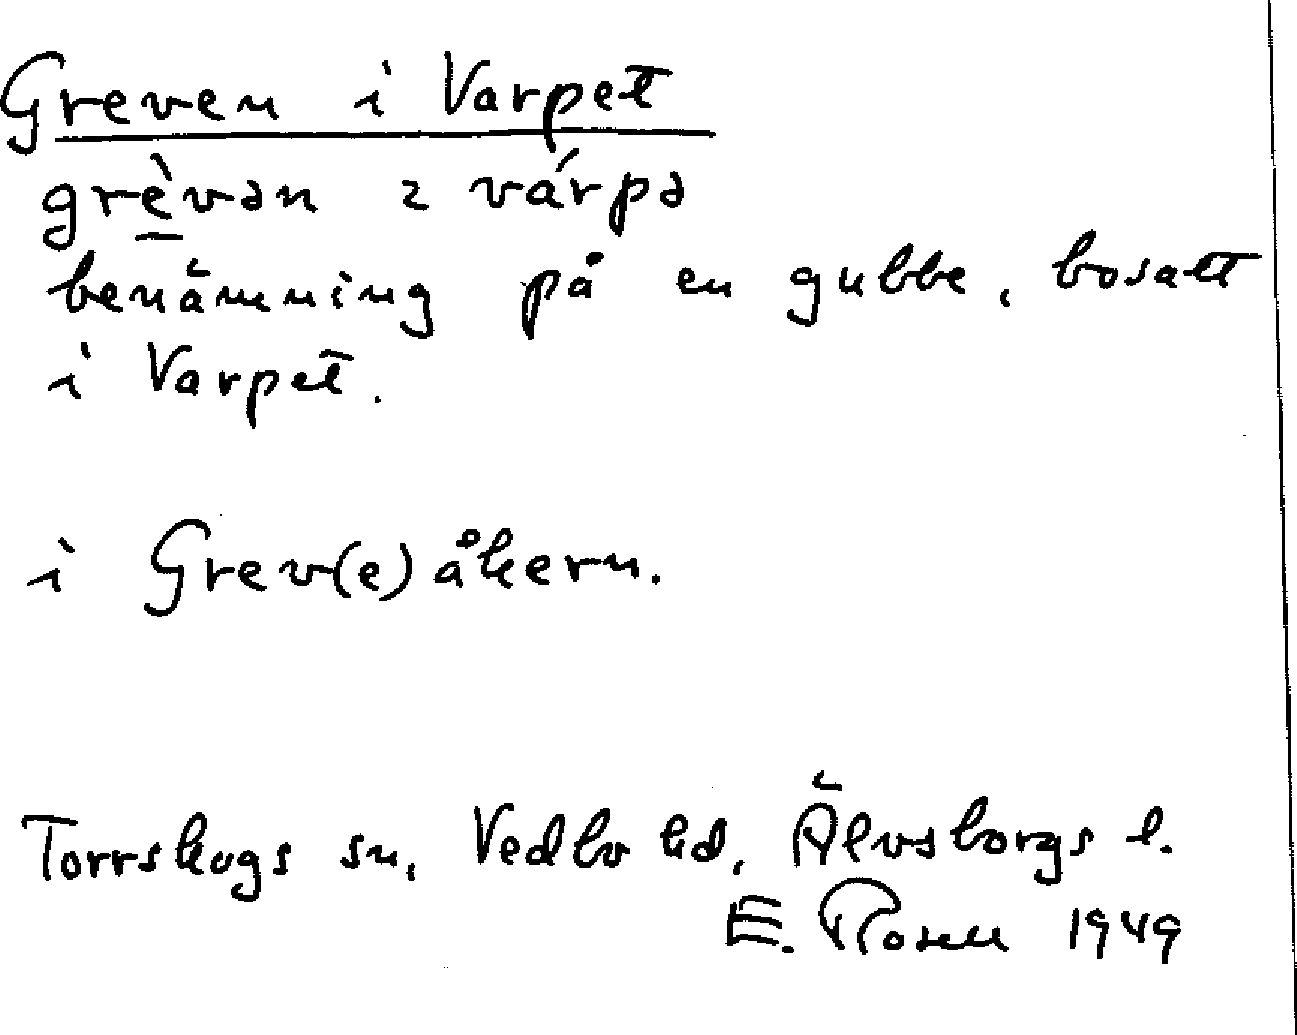 Greven i Varpet
grèvən ɩ várpə
benämning på en gubbe, bosatt
i Varpet.
i Grev(e)åkern.
Torrskogs sn, Vedbo hd, Älvsborgs l.
E. Rosell 1949